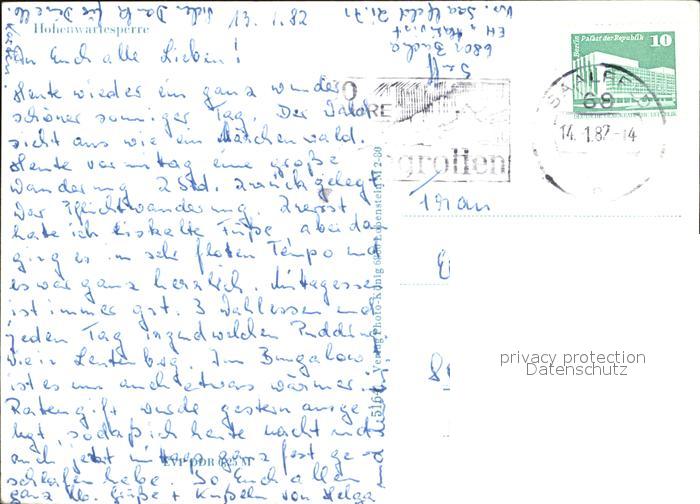 Hohenwartesperre
13.1.82
Viele Dank für
An Euch alle Lieben!
Heute wieder ein ganz wunder
schöner sonniger Tag. Der Wald
sieht aus wie ein Märchenwald.
Heute vormittag eine große
Wanderung 2 Std. zurückgelegt
Der Pflichtwanderung. Zuerst
hatte ich eiskalte Füße, aber da
ging es in sehr flotten Tempo und
es war ganz herrlich. Mittagessen
ist immer gut. 3 Wahlessen und
jeden Tag irgendwelchen Pudding
wie in Leutenberg. Im Bungalow
ist es nun auch etwas wärmer.
Rattengift wurde gestern ausge
legt, sodaß ich heute nacht und
auch jetzt mittags ganz fest ge
schlafen habe. So Euch allen
ganz lb. Grüße + Küßchen von Helga
Verlag Photo-König 6850 Lobenstein
Berlin Palast der Republik
10
SAALFELD
68
14.1.82-14
grotten
privacy protection
Datenschutz